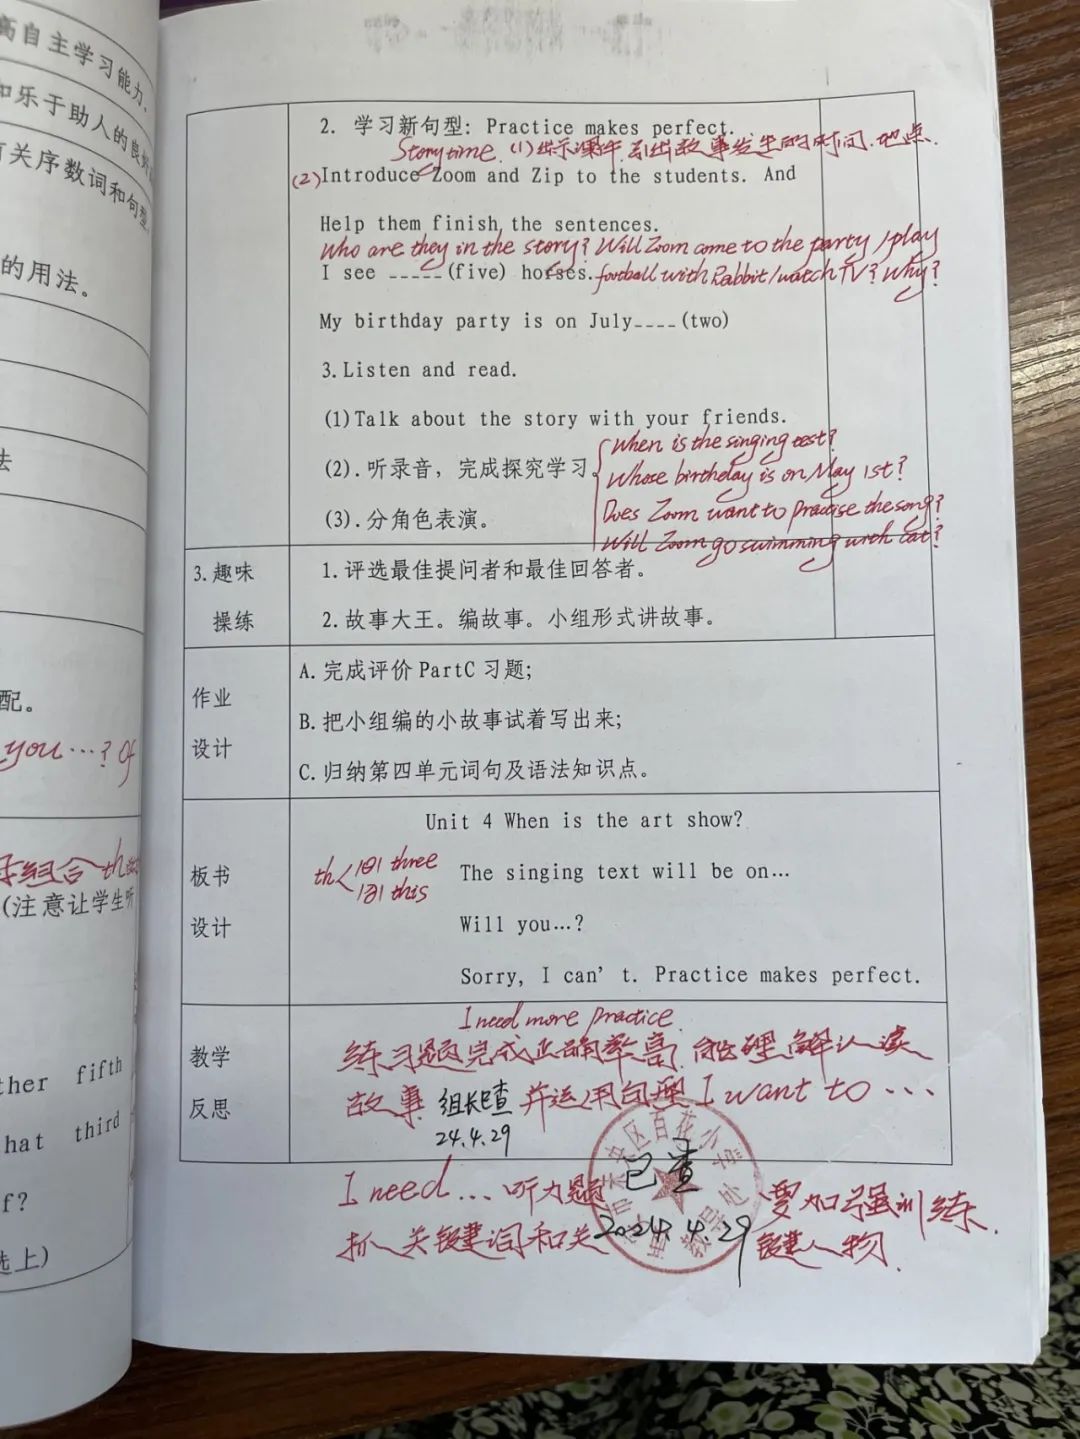 高自主学习能力、
和乐于助人的良好
有关序数词和句型
的用法。
法
配。
you…? Of
字组合th
(注意让学生听
ther fifth
hat third
f?
选上)
2. 学习新句型: Practice makes perfect.
Story time (1)出示课件,引出故事发生的时间、地点.
(2)Introduce Zoom and Zip to the students. And
Help them finish the sentences.
Who are they in the story? Will Zoom come to the party /play
I see _____(five) horses. football with Rabbit/watch TV? Why?
My birthday party is on July____(two)
3.Listen and read.
(1)Talk about the story with your friends.
When is the singing test?
(2).听录音，完成探究学习. Whose birthday is on May 1st?
Does Zoom want to practise the song?
(3).分角色表演。
Will Zoom go swimming with cat?
3.趣味
操练
1.评选最佳提问者和最佳回答者。
2.故事大王。编故事。小组形式讲故事。
作业
设计
A.完成评价PartC习题;
B.把小组编的小故事试着写出来;
C.归纳第四单元词句及语法知识点。
板书
设计
Unit 4 When is the art show?
th< three
this
The singing text will be on…
Will you…?
Sorry, I can't. Practice makes perfect.
教学
反思
I need more practice.
练习题完成正确率高,能理解认读
故事 组长已查 并运用句型 I want to …
24.4.29
I need … 听力题 已查 要加强训练.
抓关键词和关 2024.4.29 键人物.
百花小学
教导处